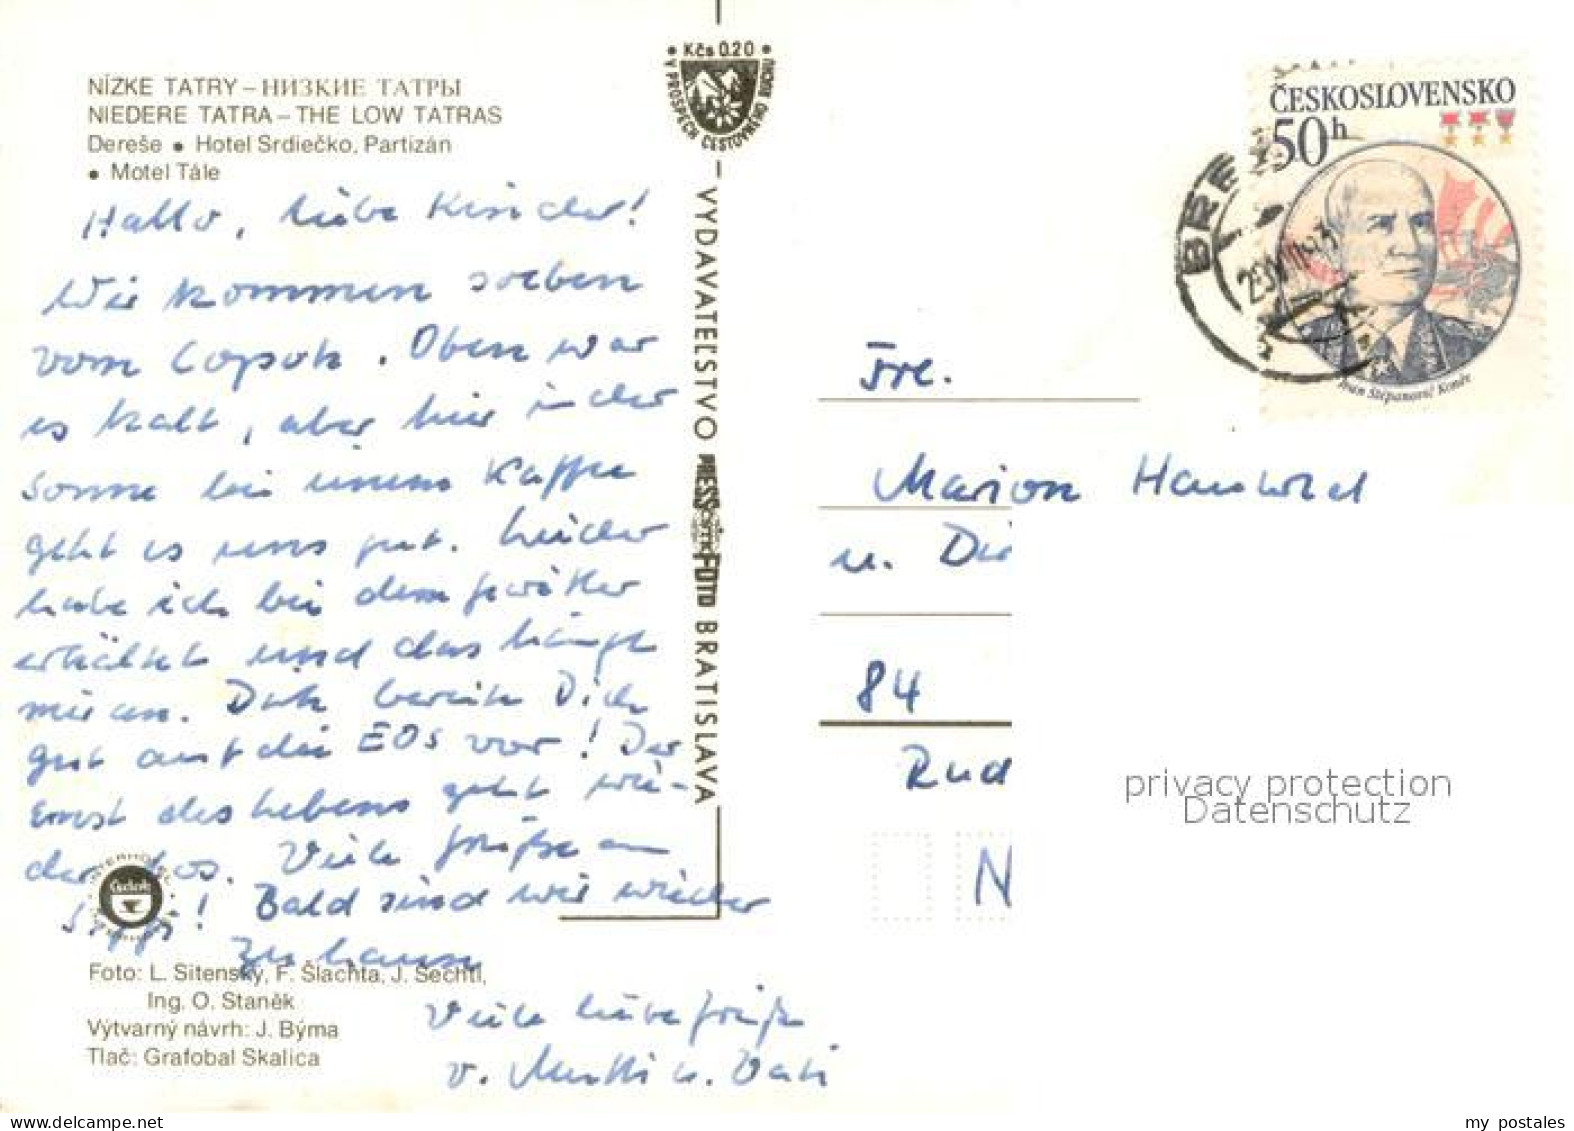 NÍZKE TATRY – НИЗКИЕ ТАТРЫ
NIEDERE TATRA – THE LOW TATRAS
Dereše • Hotel Srdiečko, Partizán
• Motel Tále
Hallo, liebe Kinder!
Wir kommen soeben
vom Copok. Oben war
es kalt, aber hier in der
Sonne bei einem Kaffee
geht es uns gut. Leider
habe ich bei dem
erkältet und das hängt
mir an.
gut auf die EOS vor! Der
Ernst des Lebens geht wie-
der los. Viele Grüße an
Bald sind wir wieder
zu hause
Viele liebe Grüße
v. Mutti u. Vati
Foto: L. Sitenský, F. Šlachta, J. Šechtl,
Ing. O. Staněk
Výtvarný návrh: J. Býma
Tlač: Grafobal Skalica
• Kčs 0,20 •
V PROSPECH CESTOVNÉHO RUCHU
VYDAVATEĽSTVO PRESSFOTO BRATISLAVA
ČESKOSLOVENSKO
50h
Ivan Stěpanovič Koněv
Fre.
Marion
u. Di
84
Rud
N
privacy protection
Datenschutz
my postales